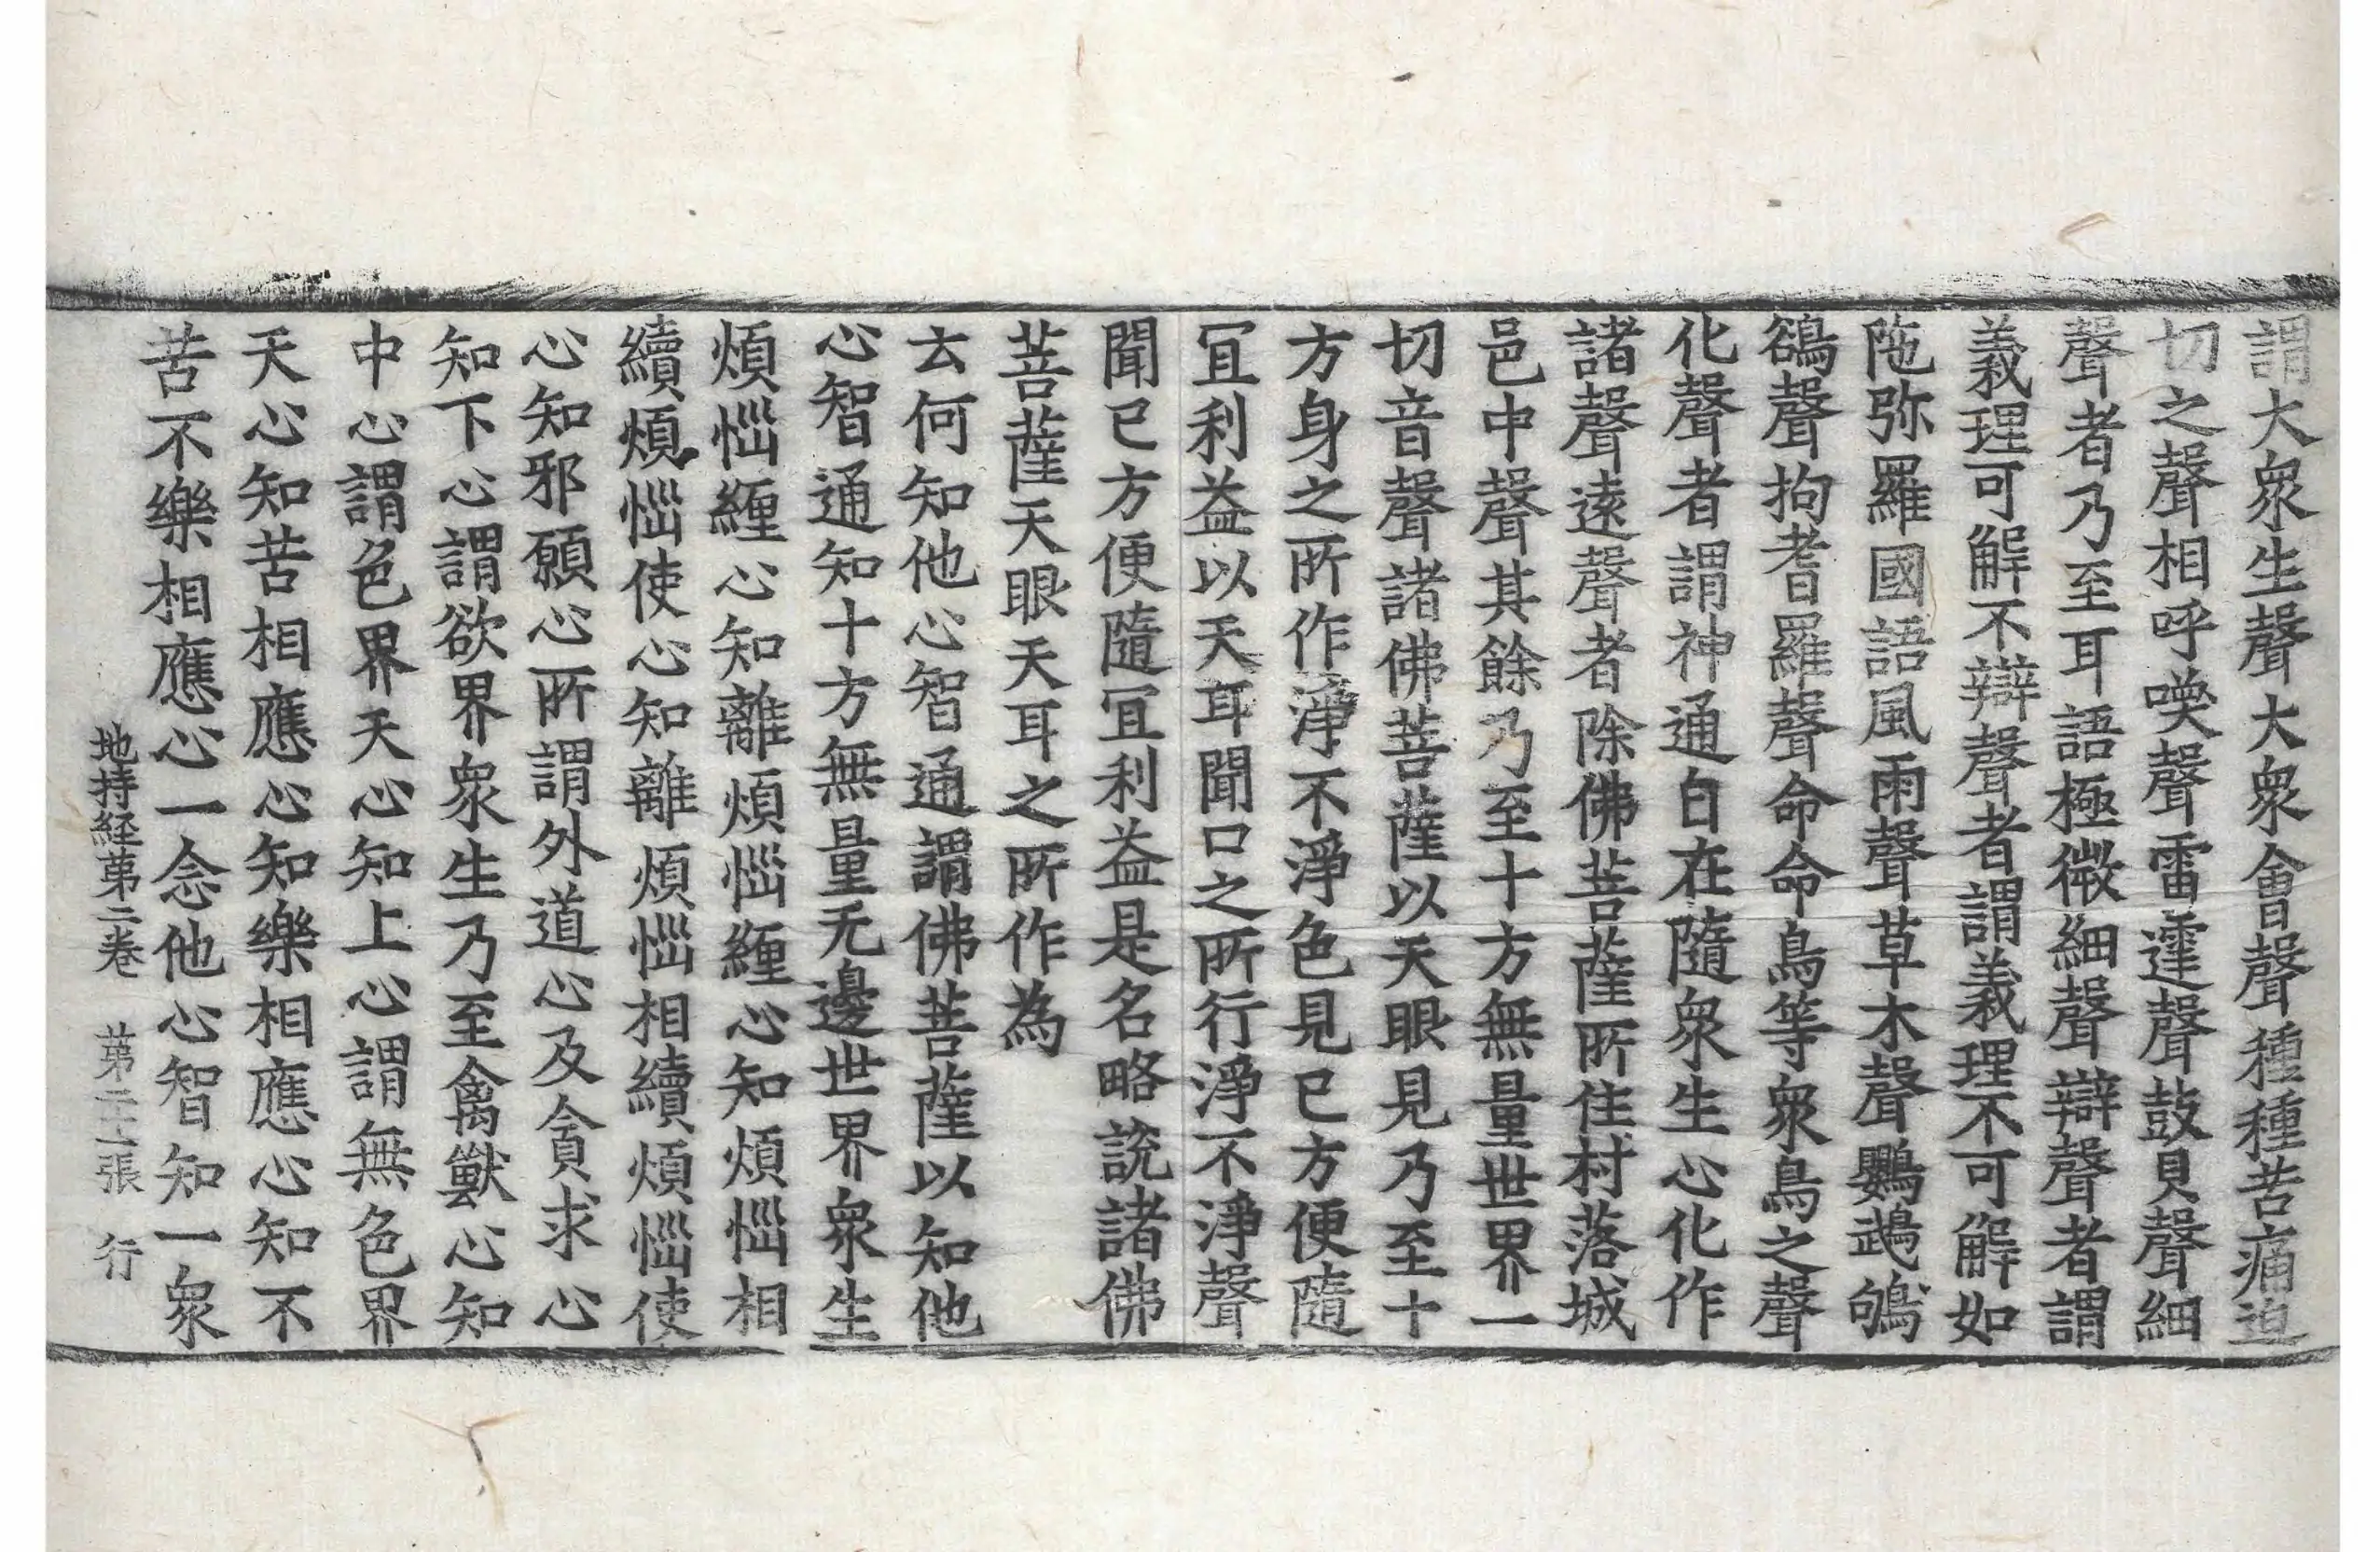 謂大衆生聲大衆會聲種種苦痛迫
切之聲相呼喚聲雷𮦷聲鼓貝聲細
聲者乃至耳語極微細聲辯聲者謂
義理可解不辯聲者謂義理不可解如
陁弥羅國語風雨聲草木聲鸚鵡鴝
鵒聲拘耆羅聲命命鳥等衆鳥之聲
化聲者謂神通自在隨衆生心化作
諸聲遠聲者除佛菩薩所住村落城
邑中聲其餘乃至十方無量世界一
切音聲諸佛菩薩以天眼見乃至十
方身之所作淨不淨色見已方便隨
冝利益以天耳聞口之所行淨不淨聲
聞已方便隨冝利益是名略說諸佛
菩薩天眼天耳之所作為
云何知他心智通謂佛菩薩以知他
心智通知十方無量无邊世界衆生
煩惱纏心知離煩惱纏心知煩惱相
續煩惱使心知離煩惱相續煩惱使
心知邪願心所謂外道心及貪求心
知下心謂欲界衆生乃至禽獸心知
中心謂色界天心知上心謂無色界
天心知苦相應心知樂相應心知不
苦不樂相應心一念他心智知一衆
地持経苐二卷 苐二十二張 行